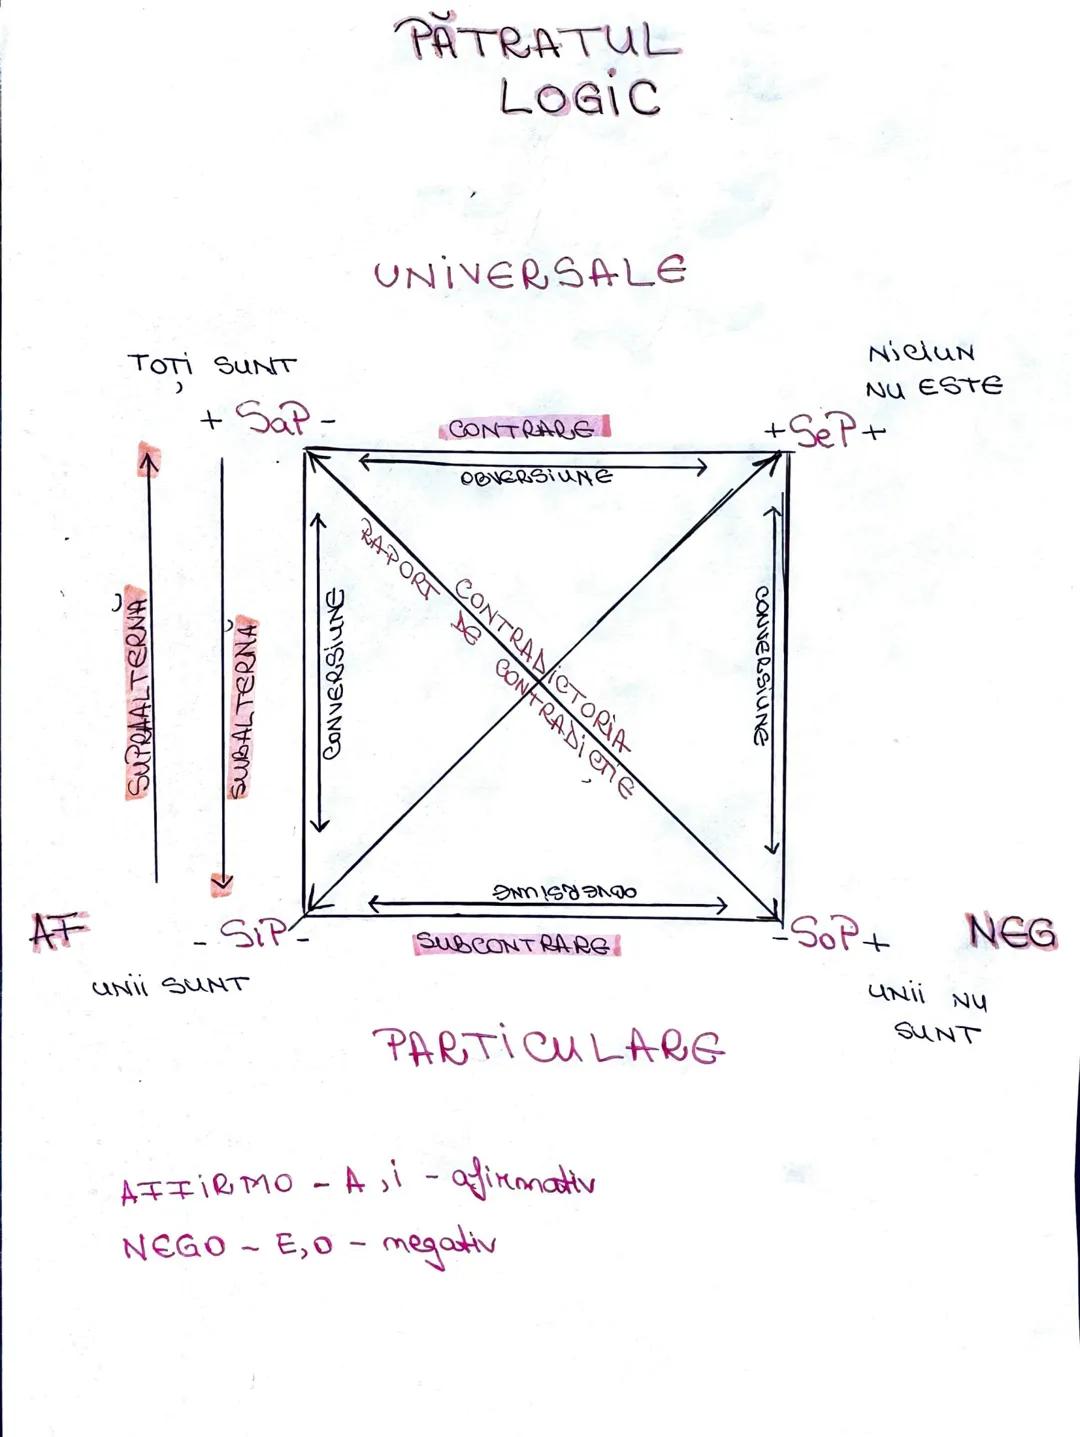 PĂTRATUL
LOGIC
UNIVERSALE
TOȚI SUNT
NICIUN
NU ESTE
+ SaP -
CONTRARE
+SeP+
OBVERSIUNE
RAPORT DE CONTRADICȚIE
CONTRADICTORIA
SUPRAALTERNĂ
SUBALTERNĂ
CONVERSIUNE
CONVERSIUNE
OBVERSIUNE
AF
- SiP-
SUBCONTRARE
-SoP+
NEG
UNII SUNT
UNII NU
SUNT
PARTICULARE
AFFIRMO - A, i - afirmativ
NEGO - E, O - negativ